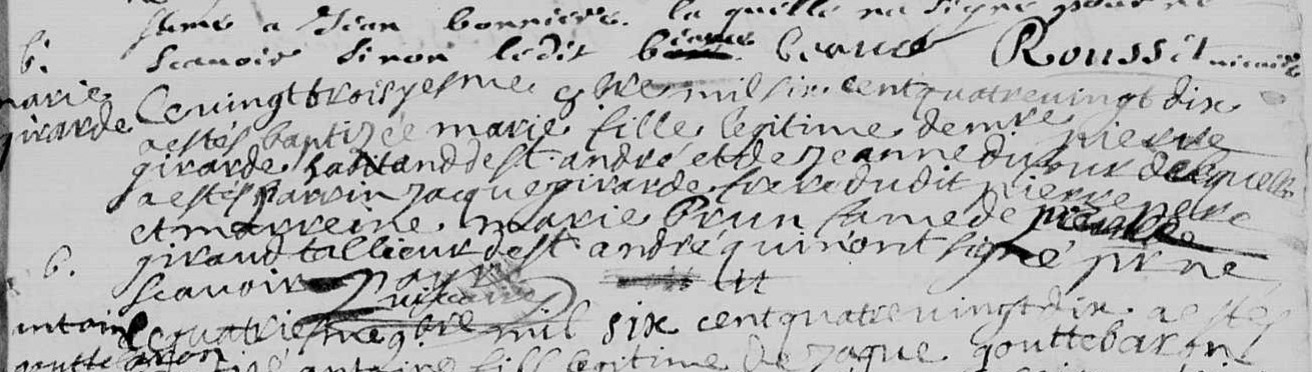 fame a Jean bonniere. la quelle na signé pour ne
b. scauoir sinon ledit Rousset uicaire
marie girarde
Le uingt troisyesme 9bre mil six cent quatre uingt dix
a estés baptizée marie fille legitime de mre pierre
girarde habitand de st. andré et de Jeanne dufour de laquelle
a estés parrin Jacque girarde frere dudit pierre
et marreine marie Brun fame de
giraud tallieur de st andré qui n'ont signé pr ne
scauoir
b.
antoine goutte baron
Le quatriesme 9bre mil six cent quatre uingt dix a estes
antoine fils legitime de Jaque gouttebaron